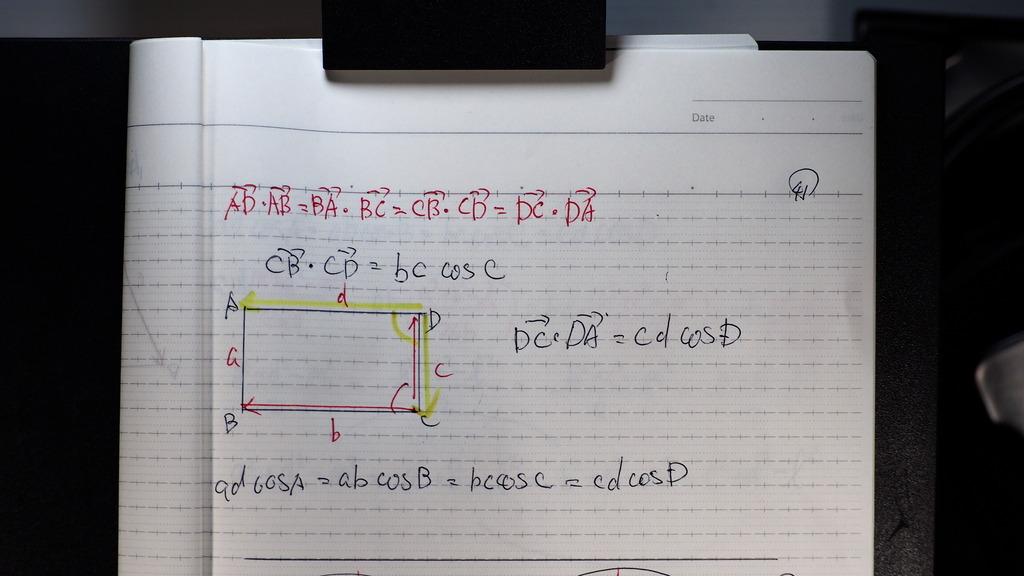 Date
41
AD⃗·AB⃗ = BA⃗·BC⃗ = CB⃗·CD⃗ = DC⃗·DA⃗
CB⃗·CD⃗ = bc cos C
A d D
DC⃗·DA⃗ = cd cos D
a c
B b C
ad cos A = ab cos B = bc cos C = cd cos D